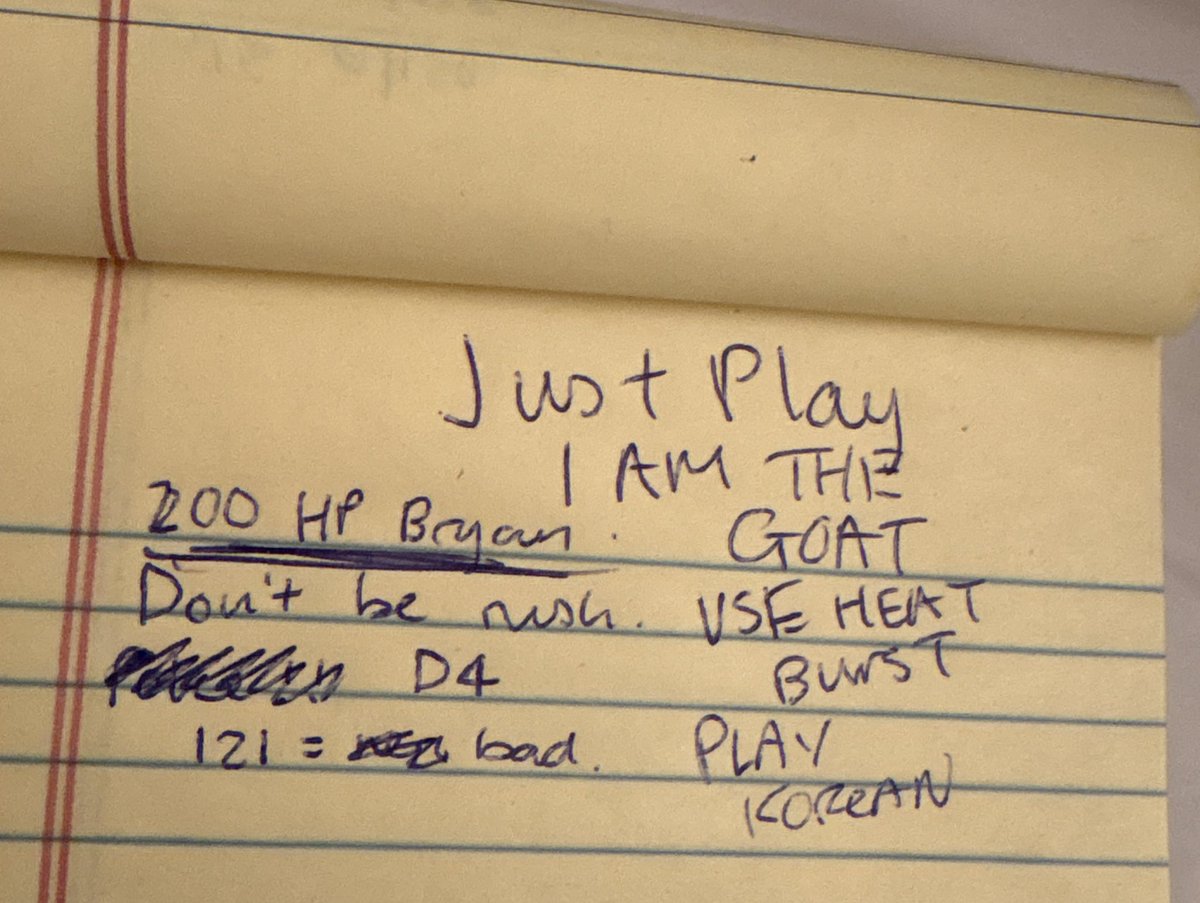 Just Play
I AM THE
GOAT
200 HP Bryan.
Don't be rush.
D4
121 = bad.
USE HEAT
BURST
PLAY
KOREAN